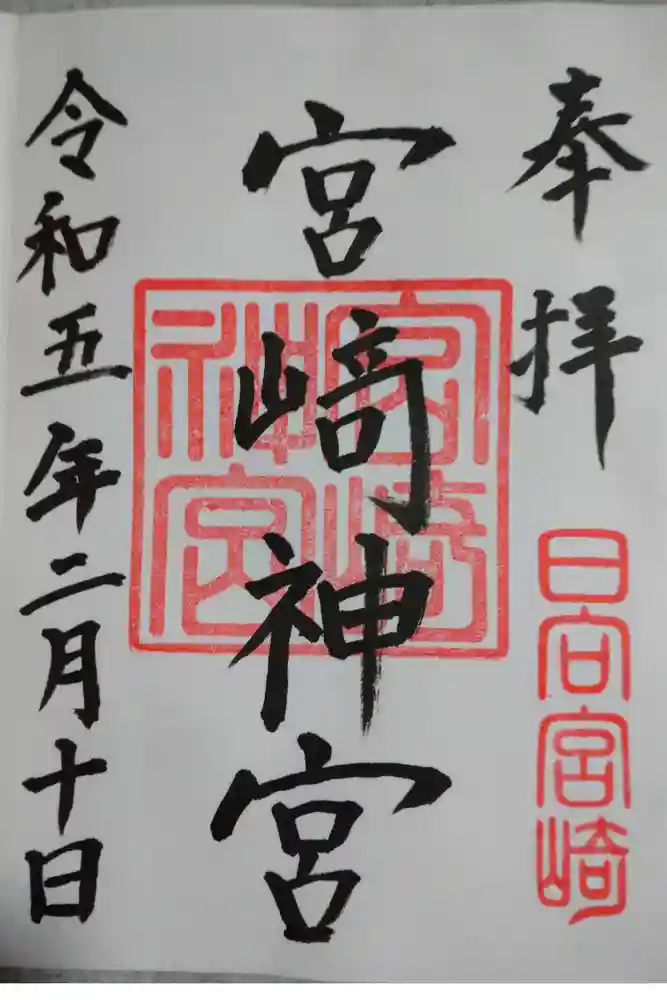 奉拝
日向宮崎
宮崎神宮
宮﨑神宮
令和五年二月十日